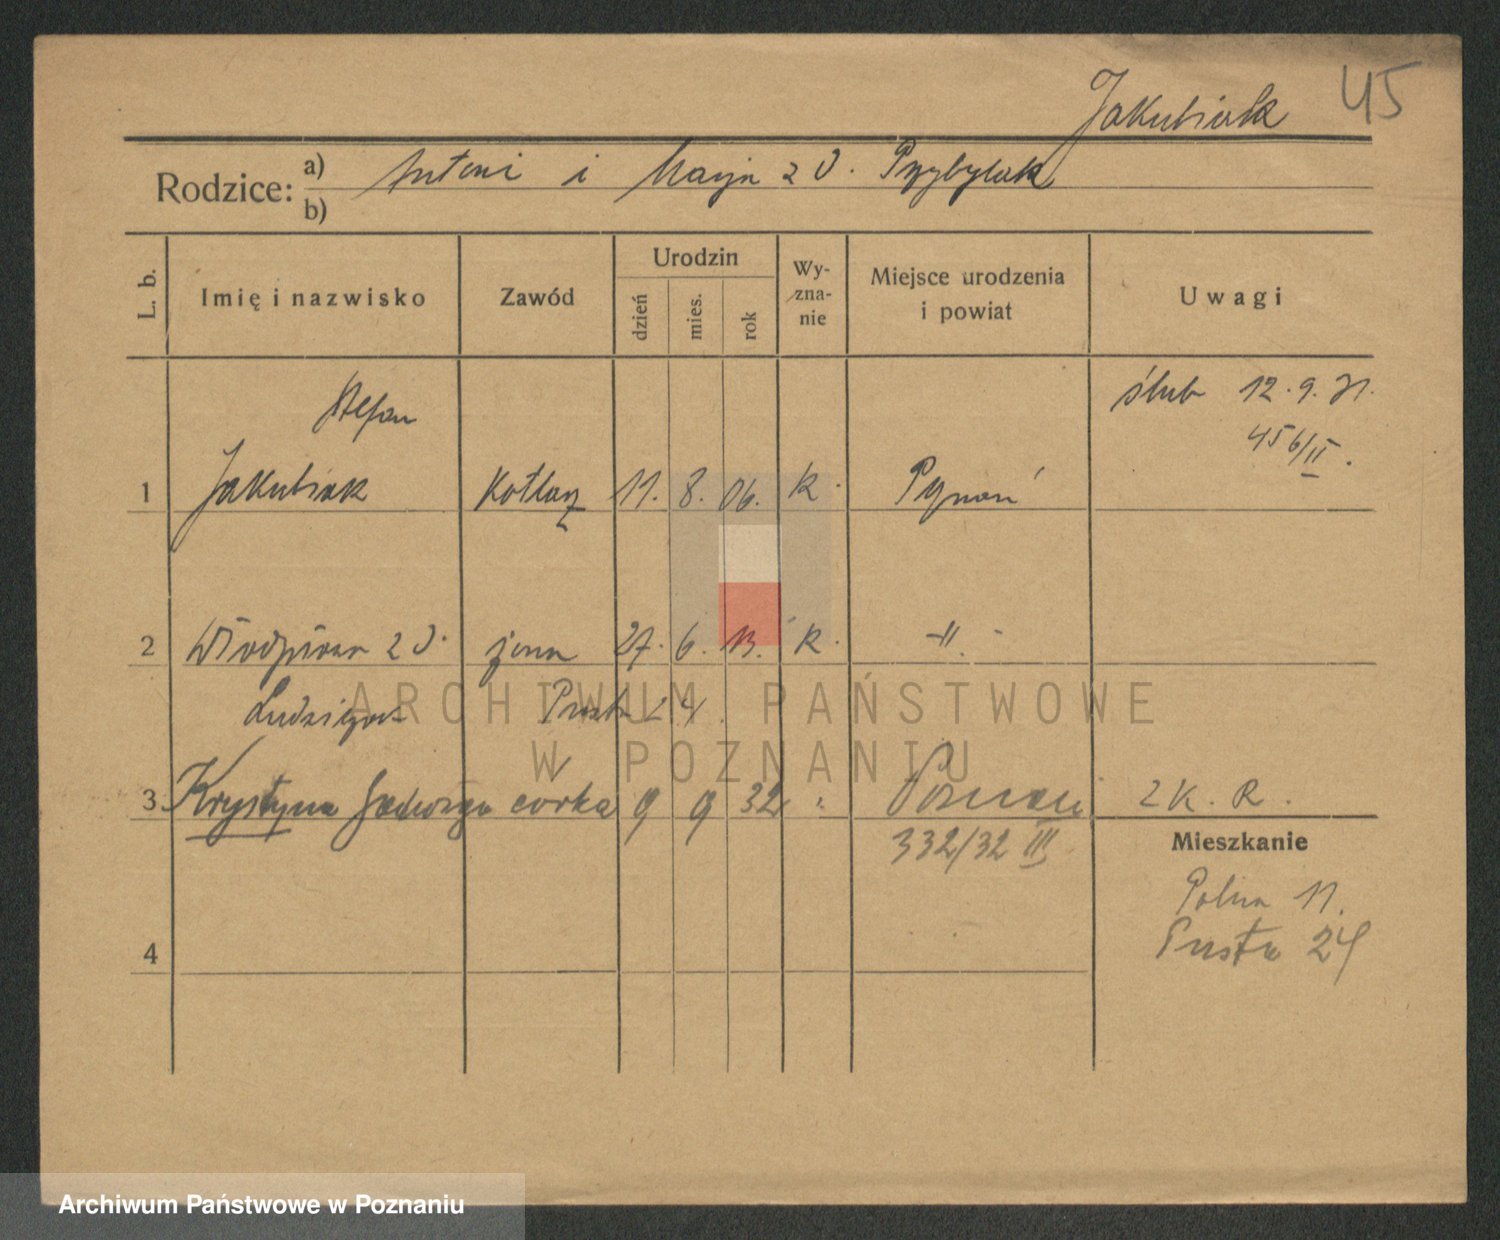 Jakubiak 45
Rodzice: a) Antoni i Marja z d. Przybylak
b)
L. b. Imię i nazwisko Zawód Urodzin dzień mies. rok Wy-zna-nie Miejsce urodzenia i powiat Uwagi
Stefan ślub 12.9.31.
456/II.
1 Jakubiak Kotlarz 11. 8. 06. k.
2 z d. żona 27. 6. 13. k. -"-
Pusta 24
3 Krystyna Jadwiga corka 9 9 32 " Poznań z K. R.
332/32 III Mieszkanie
Polna 11.
4 Pusta 24
ARCHIWUM PAŃSTWOWE
W POZNANIU
Archiwum Państwowe w Poznaniu